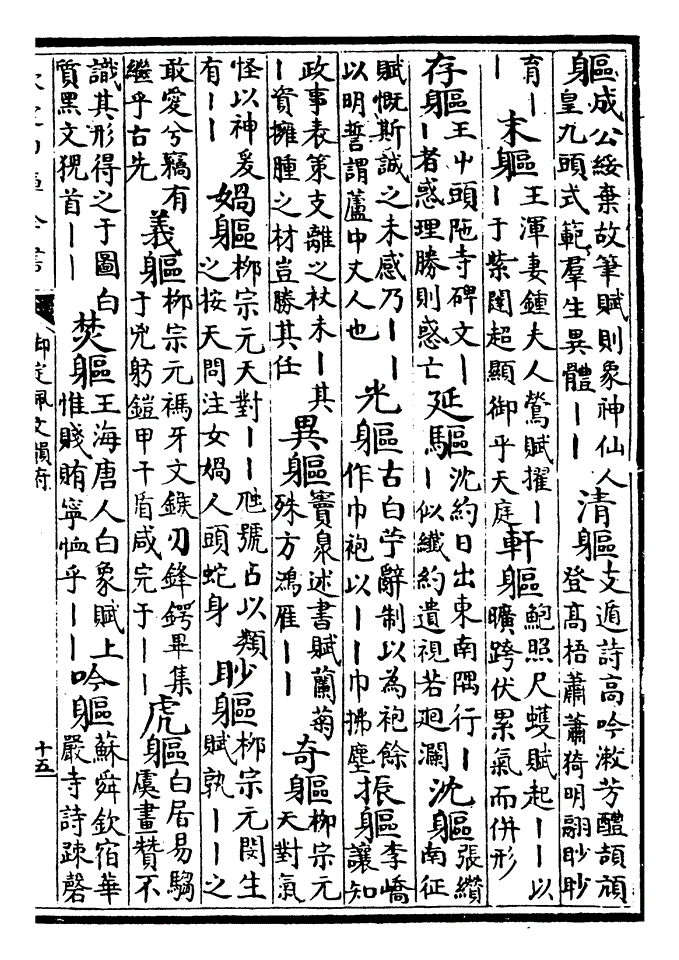 軀成公綏棄故筆賦則象神仙人
皇九頭式範羣生異體——
清軀支遁詩高吟漱芳醴頡頏
登髙梧蕭蕭猗明翮眇眇
育—
—
末軀王渾妻鍾夫人鶯賦擢—
—于紫闥超顯御乎天庭
軒軀鮑照尺蠖賦起——以
曠跨伏累氣而併形
存軀王屮頭陁寺碑文—
—者惑理勝則惑亡
延軀沈約日出東南隅行—
—似纎約遺視若廻瀾
沈軀張纘
南征
賦慨斯誠之未感乃——
以明誓謂蘆中丈人也
光軀古白苧辭制以為袍餘
作巾袍以——巾拂塵
振軀李嶠
讓知
政事表策支離之杖未—其
—資擁腫之材豈勝其任
異軀竇泉述書賦蘭菊
殊方鴻雁——
奇軀柳宗元
天對氣
怪以神爰
有——
媧軀柳宗元天對——虺號占以類
之按天問注女媧人頭蛇身
眇軀柳宗元閔生
賦孰——之
敢愛兮竊有
繼乎古先
義軀柳宗元禡牙文鏃刃鋒鍔畢集
于兇躬鎧甲干盾咸完于——
虎軀白居易騶
虞畫贊不
識其形得之于圖白
質黑文猊首——
焚軀王海唐人白象賦上
惟賤賄寧恤乎——
吟軀蘇舜欽宿華
嚴寺詩疎磬
御定佩文韻府
十五